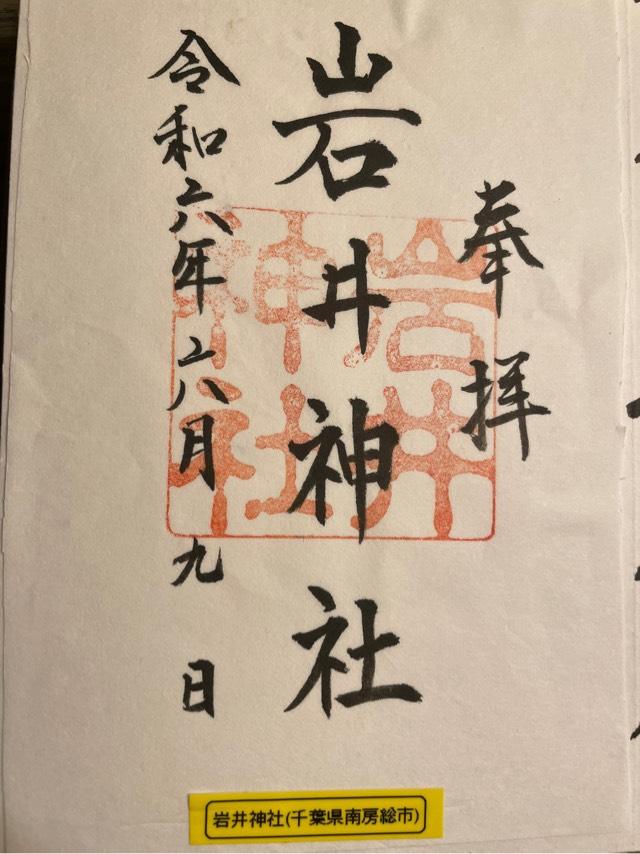 奉拝
岩井神社
令和六年六月九日
岩井
神社
岩井神社(千葉県南房総市)